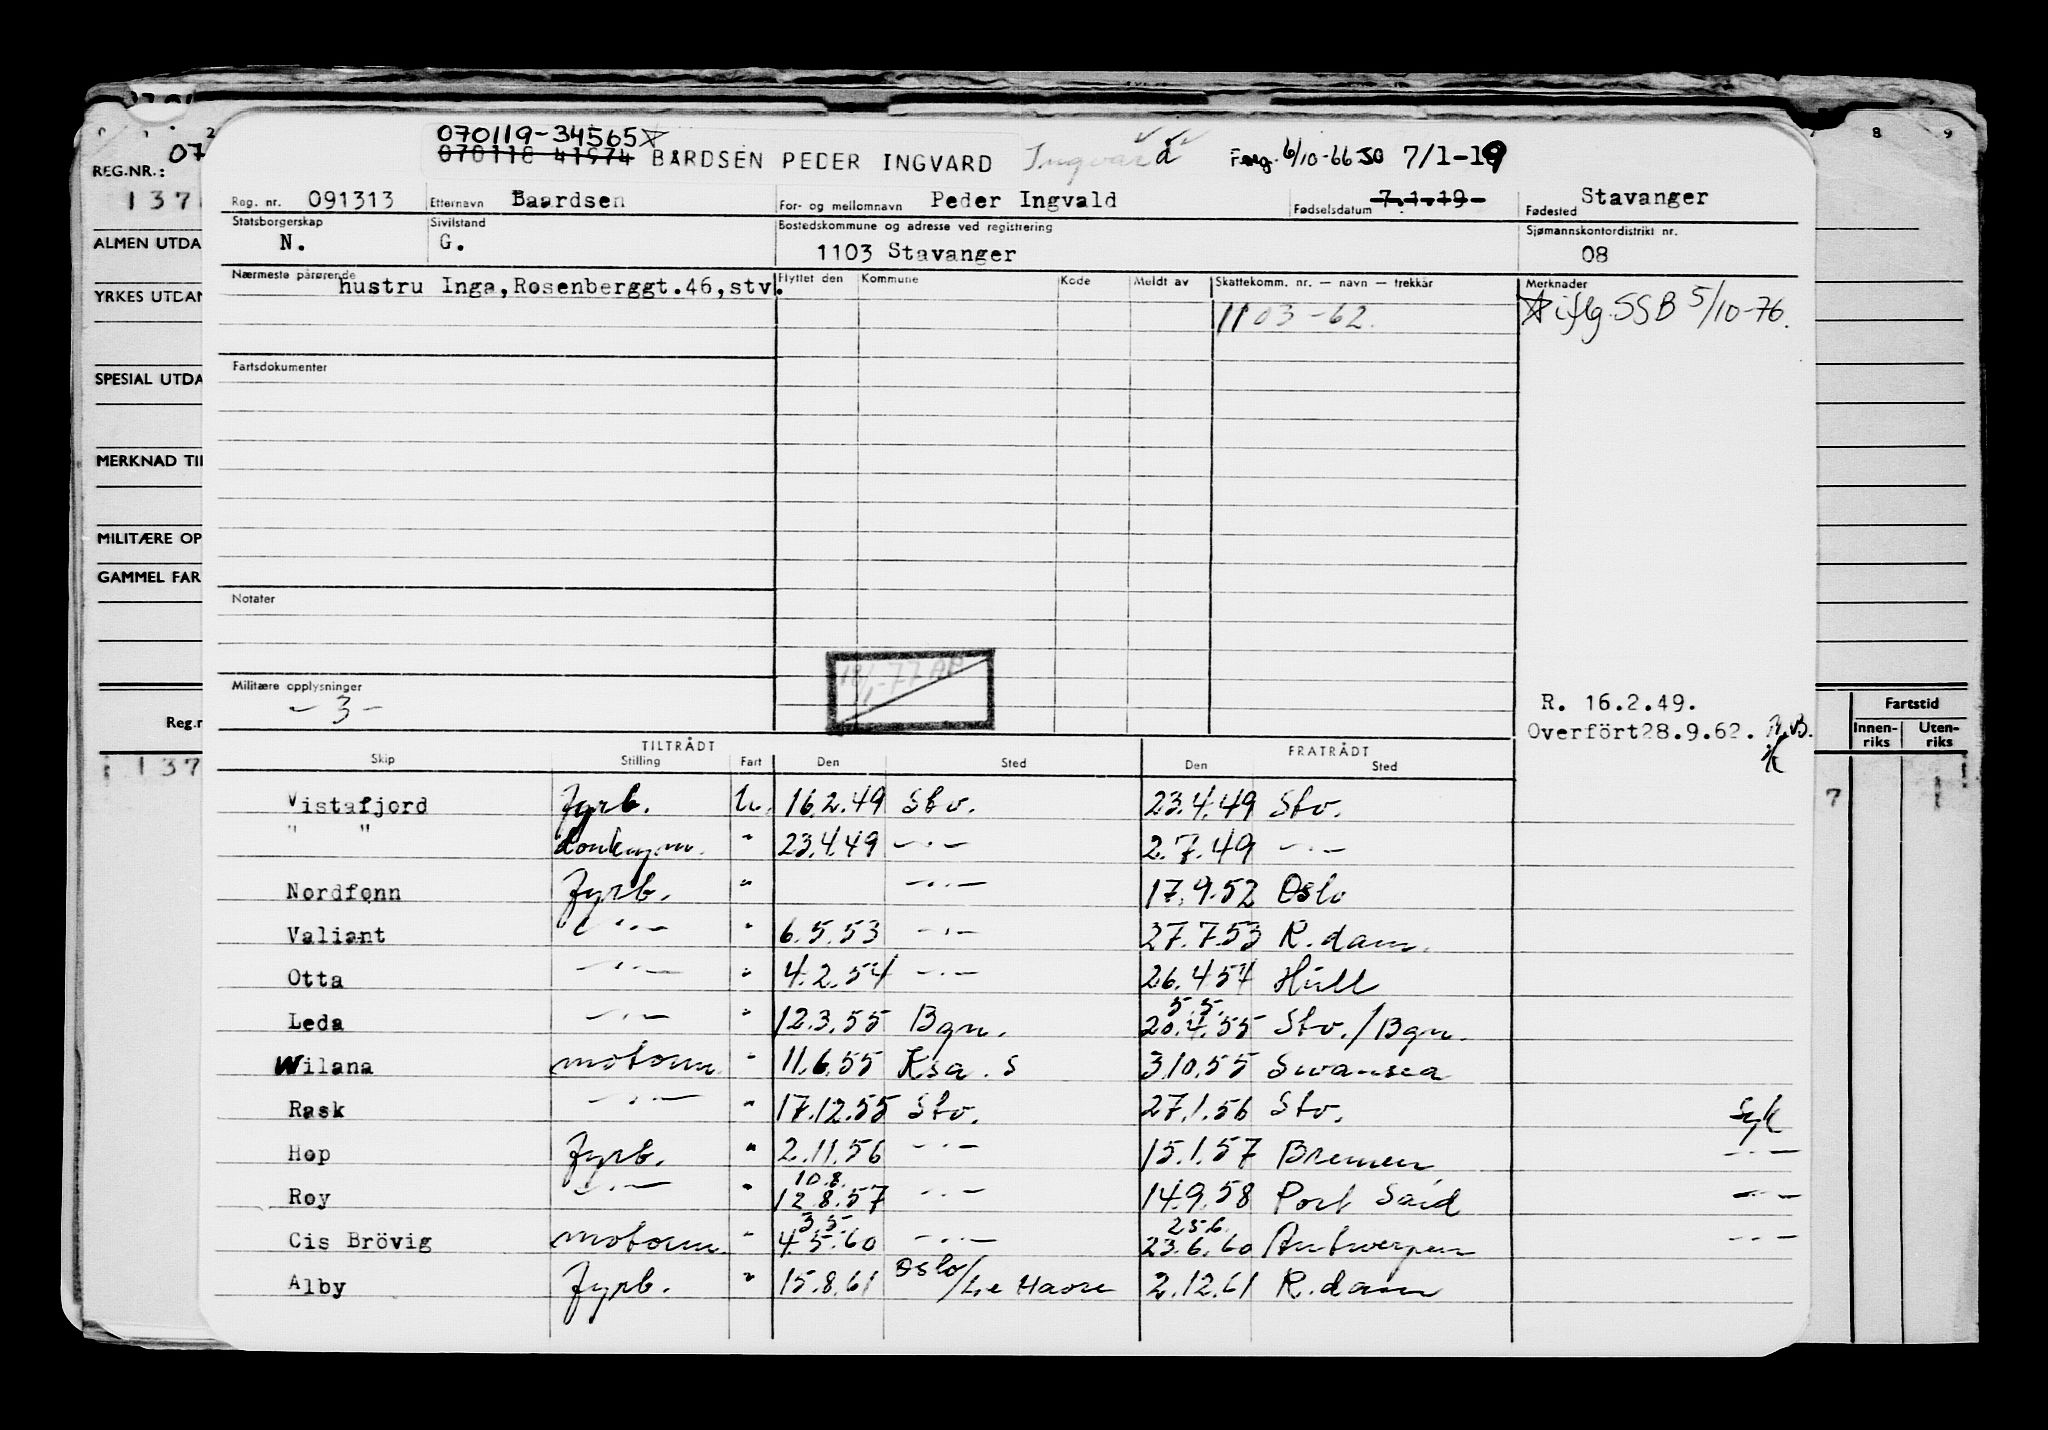 070119-34565
070118 41974 BARDSEN PEDER INGVARD Ingvard 6/10-66 SO 7/1-19
Reg. nr. 091313 Etternavn Baardsen For- og mellomnavn Peder Ingvald Fødselsdatum 7.1.19- Fødested Stavanger
Statsborgerskap N. Sivilstand G. Bostedskommune og adresse ved registrering 1103 Stavanger Sjømannskontordistrikt nr. 08
Nærmeste pårørende hustru Inga,Rosenberggt.46,stv. Flyttet den Kommune Kode Meldt av Skattekomm. nr. — navn — trekkår Merknader
1103-62. iflg. SSB 5/10-76.
Fartsdokumenter
Notater
Militære opplysninger
- 3 -
R. 16.2.49.
Overfört28.9.62.
TILTRÅDT FRATRÅDT
Skip Stilling Fart Den Sted Den Sted
Vistafjord Fyrb. U. 16.2.49 Stv. 23.4.49 Stv.
" " Donkeym. " 23.4.49 -·- 2.7.49 -·-
Nordfonn Fyrb. " -··- 17.9.52 Oslo
Valiant -··- " 6.5.53 -·- 27.7.53 R.dam.
Otta -··- " 4.2.54 -·- 26.4.54 Hull
5.5.
Leda -·- " 12.3.55 Bgn. 20.4.55 Stv./Bgn.
Wilana motorm. " 11.6.55 Ksa. S 3.10.55 Swansea
Rask -··- " 17.12.55 Stv. 27.1.56 Stv. Syk
Hop Fyrb. " 2.11.56 -··- 15.1.57 Bremen -·-
10.8.
Roy -··- " 12.8.57 -·- 14.9.58 Port Said -·-
3.5. 25.6.
Cis Brövig motorm. " 4.5.60 -··- 23.6.60 Antwerpen -·-
Alby Fyrb. " 15.8.61 Oslo/Le Havre 2.12.61 R.dam
REG.NR.: 07
137
ALMEN UTDA
YRKES UTDAN
SPESIAL UTDA
MERKNAD TIL
MILITÆRE OP
GAMMEL FAR
Reg.n
137
8 9
Fartstid
Innen-riks Uten-riks
7 1